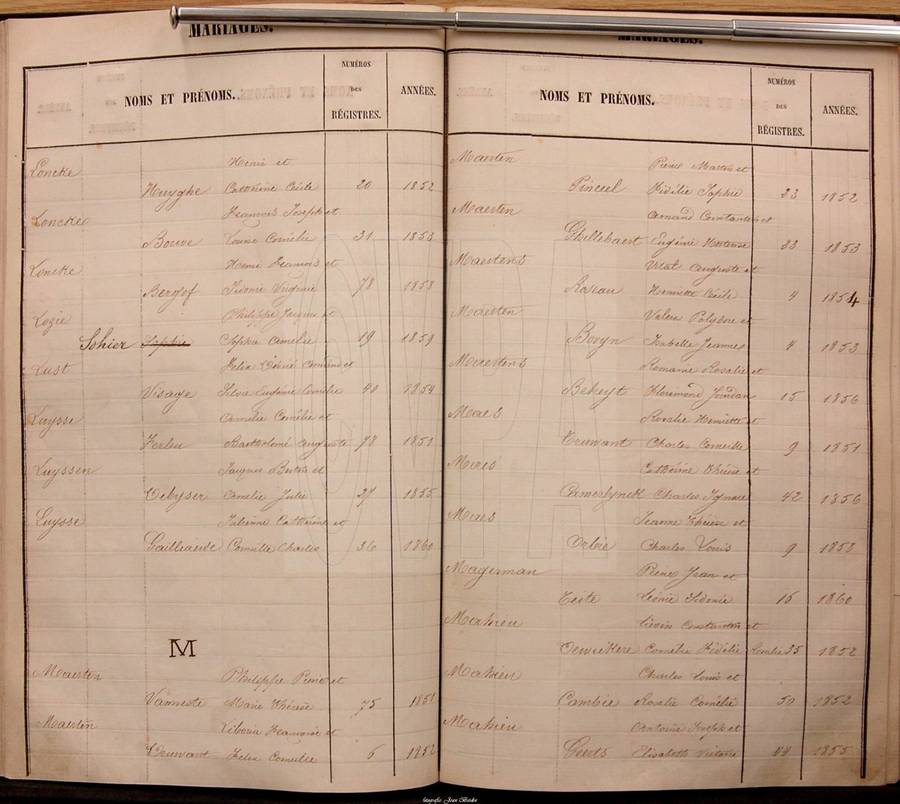 MARIAGES.
NOMS ET PRÉNOMS.
NUMÉROS DES RÉGISTRES.
ANNÉES.
Loncke
Henri et
Huyghe Catherine Cécile 20 1852
Loncke
François Joseph et
Bouve Louise Comélie 31 1853
Loncke
Henri François et
Bergof Sidonie Virginie 78 1853
Logie
Philippe Jacques et
Sohier Sophie Sophie Amélie 19 1859
Lust
Felix Désiré Armand et
Visage Silvie Eugénie Comélie 40 1854
Luysse
Camélie Comélie et
Ferleu Bartolomé Auguste 78 1851
Luyssen
Jacques Bertin et
Debyser Amélie Julie 27 1855
Luysse
Julienne Catherine et
Gailliaerde Camille Charles 36 1860
M
Maerten
Philippe Pierre et
Vanneste Marie Thérèse 75 1851
Maerten
Liboria Françoise et
Felix Corneille 6 1852
MARIAGES.
NOMS ET PRÉNOMS.
NUMÉROS DES RÉGISTRES.
ANNÉES.
Maerten
Pierre Martin et
Pinceel Fidélie Sophie 23 1852
Maerten
Amand Constantin et
Ghillebaert Eugénie Hortense 33 1853
Maertens
Vital Auguste et
Roseau Henriette Cécile 4 1854
Maerten
Valere Polydore et
Boeyn Isabelle Jeannes 4 1853
Maertens
Romanie Rosalie et
Bekeyt Florimond Jourdan 15 1856
Maes
Rosalie Henriette et
Truwant Charles Corneille 9 1851
Maes
Catherine Thérèse et
Charles Ignace 42 1856
Maes
Jeanne Thérèse et
Charles Louis 9 1858
Magerman
Pierre Jean et
Teste Léonie Sidonie 16 1860
Mahieu
Liévin Constantin et
Comélie Fidélie 35 1852
Mahieu
Charles Louis et
Cambie Rosalie Comélie 50 1852
Mahieu
Antoine Joseph et
Geerts Elisabeth Victoire 44 1855
fotografie Jean Baske